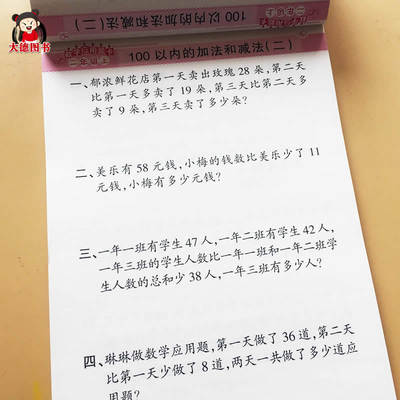 大德图书
100以内的加法和减法(二)
二年级上
100以内的加法和减法(二)
一、郁浓鲜花店第一天卖出玫瑰28朵,第二天
比第一天多卖了19朵,第三天比第二天多
卖了9朵,第三天卖了多少朵?
二、美乐有58元钱,小梅的钱数比美乐少了11
元钱,小梅有多少元钱?
三、一年一班有学生47人,一年二班有学生42人,
一年三班的学生人数比一年一班和一年二班学
生人数的总和少38人,一年三班有多少人?
四、琳琳做数学应用题,第一天做了36道,第二天
比第一天少做了8道,两天一共做了多少道应
用题?